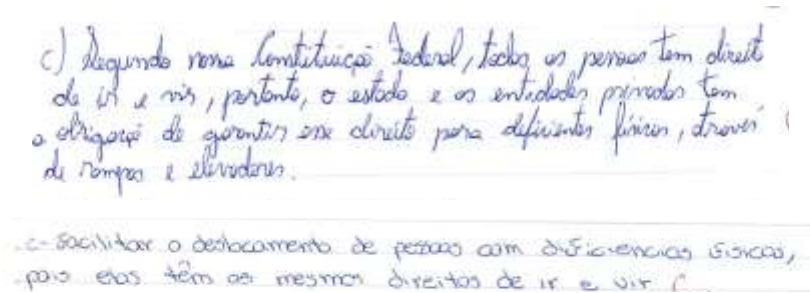 c) Segundo nossa Constituição Federal, todas as pessoas tem direito
de ir e vir, portanto, o estado e as entidades privadas tem
a obrigação de garantir esse direito para deficientes físicos, através
de rampas e elevadores.
c- facilitar o deslocamento de pessoas com deficiencias fisicas,
pois elas têm os mesmos direitos de ir e vir